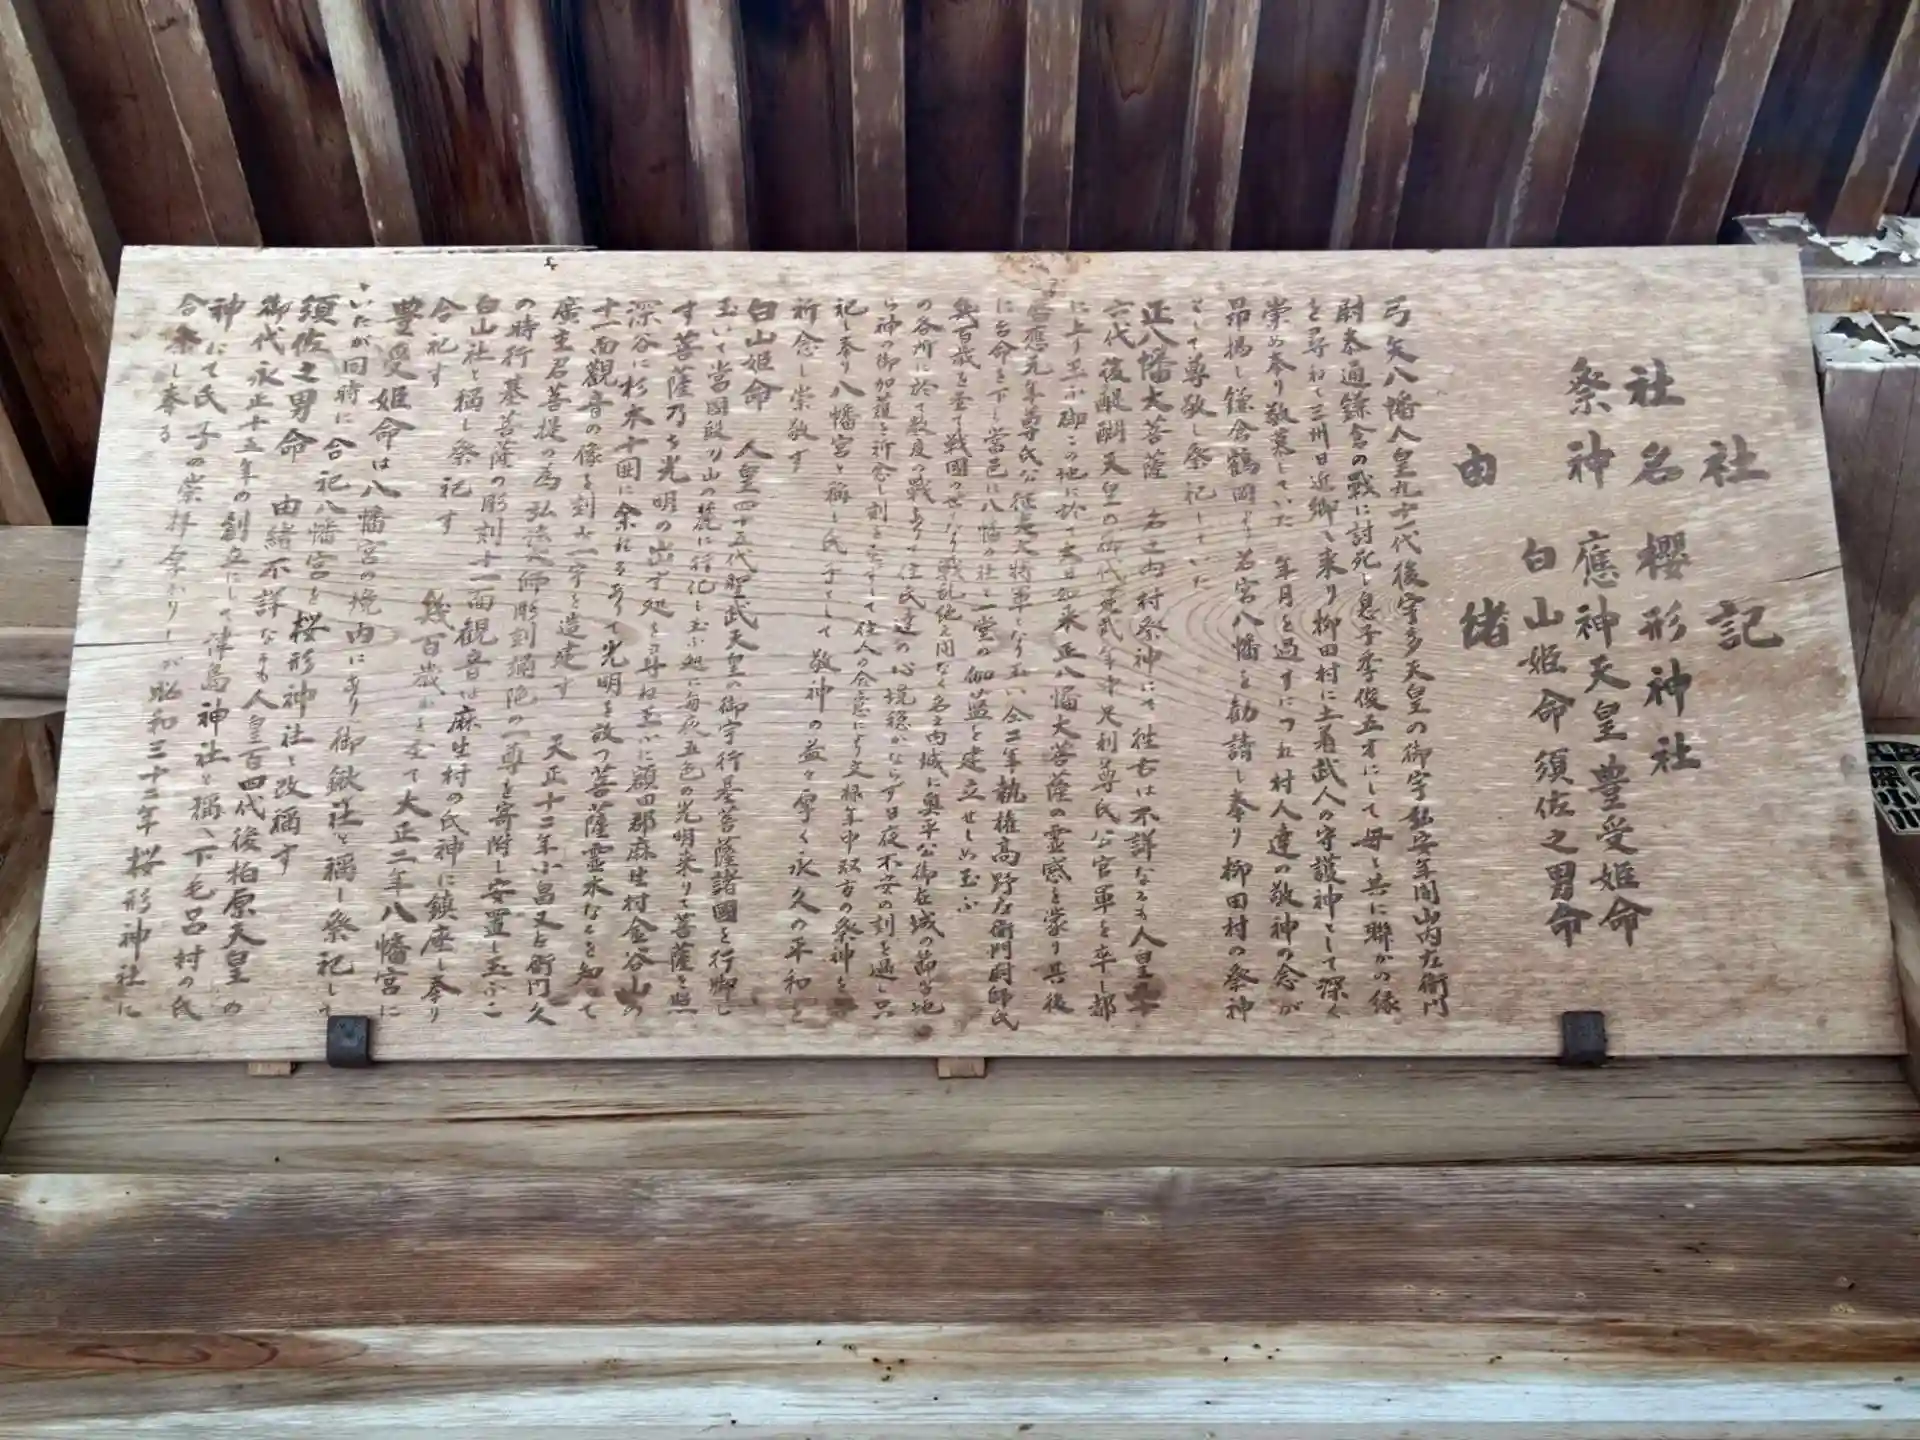 社記
社名 櫻形神社
祭神 應神天皇 豊受姫命
白山姫命 須佐之男命
由緒
弓矢八幡人皇九十一代後宇多天皇の御宇弘安年間山内左衛門
尉泰通鎌倉の戰に討死し息子季俊五才にして母と共に聯かの縁
を尋ねて三州日近郷へ来り柳田村に土着武人の守護神として深く
崇め奉り敬棄していた 年月を過すにつれ村人達の敬神の念が
昂揚し鎌倉鶴岡より若宮八幡を勧請し奉り柳田村の祭神
として尊敬し祭祀していた
正八幡大菩薩 名之内村祭神にて往古は不詳なるも人皇九十
六代後醍醐天皇の御代建武年中足利尊氏公官軍を卒し都
に上り玉ふ御この地に於て大日如来正八幡大菩薩の霊感を蒙り其後
暦應元年尊氏公征夷大将軍となり玉い仝二年執権高野左衛門尉師氏
に台命を下し當邑に八幡の社と一堂の伽藍を建立せしめ玉ふ
幾百歳を至て戦國の世となり戦乱絶え間なく名之内城に奥平公御在城の節当地
の各所に於て数度の戦あって住民達の心境穏かならず日夜不安の刻を過し只
ら神の御加護を祈念し刻を
祀し奉り八幡宮と稱し氏子として敬神の益々厚く永久の平和と
祈念し崇敬す
白山姫命 人皇四十五代聖武天皇の御宇行基菩薩諸國を行脚し
玉いて當國段り山の麓に行化し玉ふ処に毎夜五色の光明来りて菩薩を照
す菩薩乃ち光明の出ず処を尋ね玉ふに額田郡麻生村金谷山の
深谷に杉木十囲に余れるありて光明を放つ菩薩霊木なるを知って
十一面觀音の像を刻み一宇を造建す 天正十二年小畠又右衛門久
廣主君菩提の為弘法大師彫刻彌陀の一尊を寄附し安置し玉ふこ
の時行基菩薩の彫刻十一面観音は麻生村の氏神に鎮座し奉り
白山社と稱し祭祀す 幾百歳かを至て大正二年八幡宮に
合祀す
豊受姫命は八幡宮の境内にあり御鍬社と稱し祭祀して
いたが同時に合祀八幡宮を桜形神社と改稱す
須佐之男命 由緒不詳なるも人皇百四代後柏原天皇の
御代永正十五年の創立にして津島神社と稱へ下毛呂村の氏
神にて氏子の崇拝余かりしが昭和三十二年桜形神社に
合祭し奉る